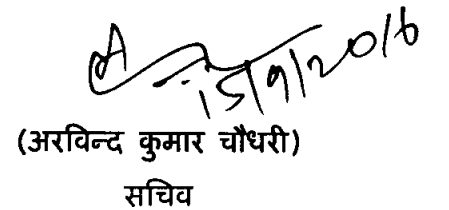 15/9/2016
(अरविन्द कुमार चौधरी)
सचिव